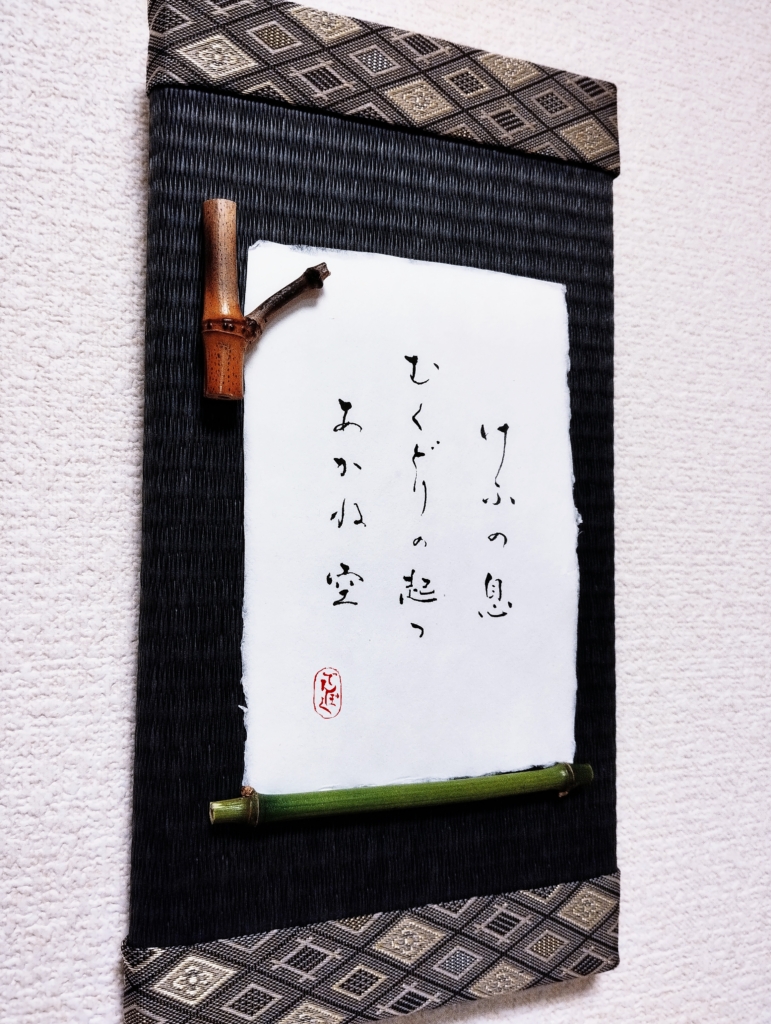 けふの息
むくどりの起つ
あかね空